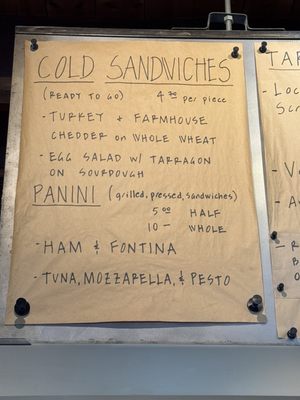 COLD SANDWICHES
(READY TO GO) 4 00 per piece
- TURKEY + FARMHOUSE
CHEDDER on WHOLE WHEAT
- EGG SALAD W/ TARRAGON
ON SOURDOUGH
PANINI (grilled, pressed, sandwiches)
5 00 HALF
10 — WHOLE
- HAM & FONTINA
- TUNA, MOZZARELLA, & PESTO